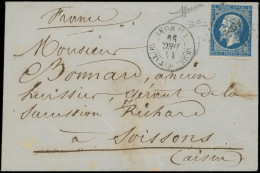 France
Monsieur
Bonnard, ancien
huissier, gérant de la
succession Richard
à Soissons
(aisne)